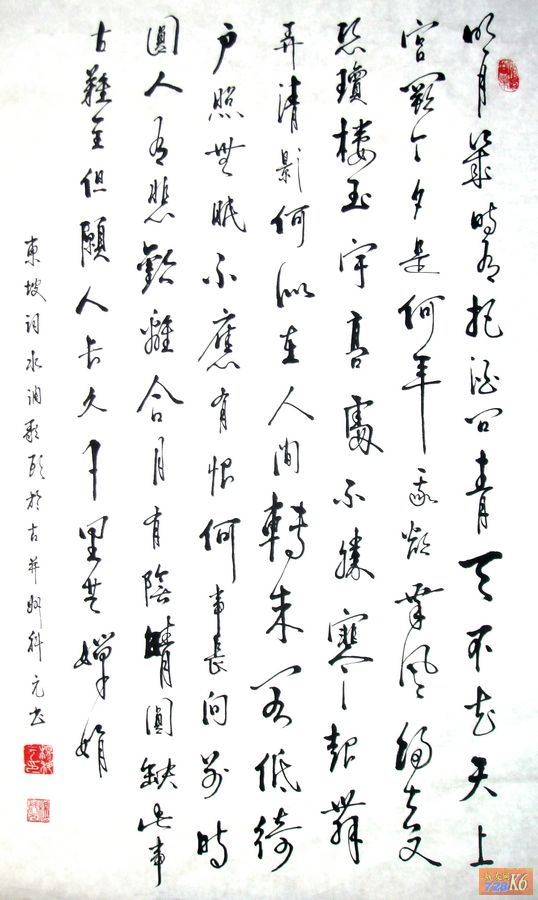 明月幾時有把酒問青天不知天上
宮闕今夕是何年我欲乘風歸去又
恐瓊樓玉宇高處不勝寒起舞
弄清影何似在人間轉朱閣低綺
户照無眠不應有恨何事長向別時
圓人有悲歡離合月有陰晴圓缺此事
古難全但願人長久千里共嬋娟
東坡詞水調歌頭於古并州科元書
728K6